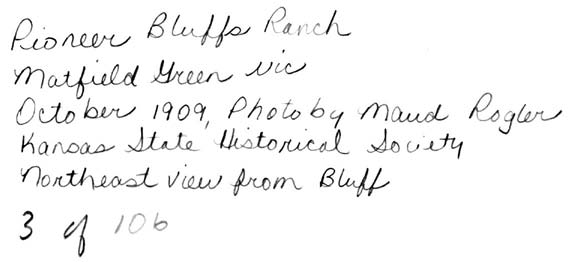 Pioneer Bluffs Ranch
Matfield Green vic
October 1909, Photo by Maud Rogler
Kansas State Historical Society
Northeast view from Bluff
3 of 106